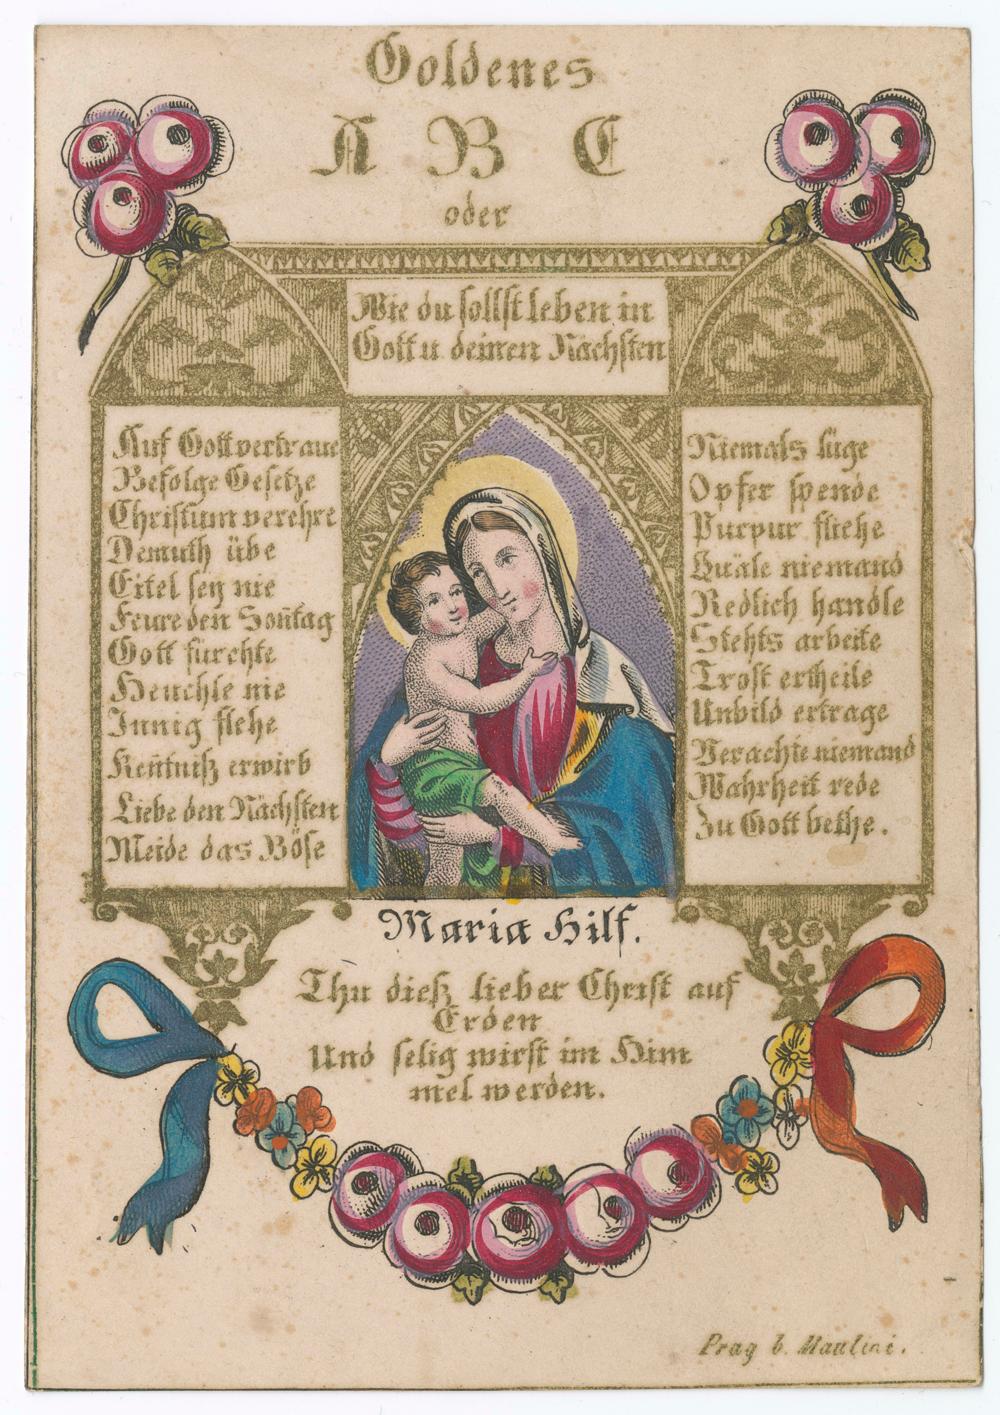 Goldenes
A B C
oder
Wie du sollst leben in
Gott u deinen Nächsten
Auf Gott vertraue
Befolge Gesetze
Christum verehre
Demuth übe
Eitel sey nie
Feure den Son̄tag
Gott fürchte
Heuchle nie
Innig flehe
Ken̄tniß erwirb
Liebe den Nächsten
Meide das Böse
Niemals lüge
Opfer spende
Purpur fliehe
Quäle niemand
Redlich handle
Stehts arbeite
Trost ertheile
Unbild ertrage
Verachte niemand
Wahrheit rede
Zu Gott bethe.
Maria Hilf.
Thu dieß lieber Christ auf
Erden
Und selig wirst im Him
mel werden.
Prag b. Maulini.